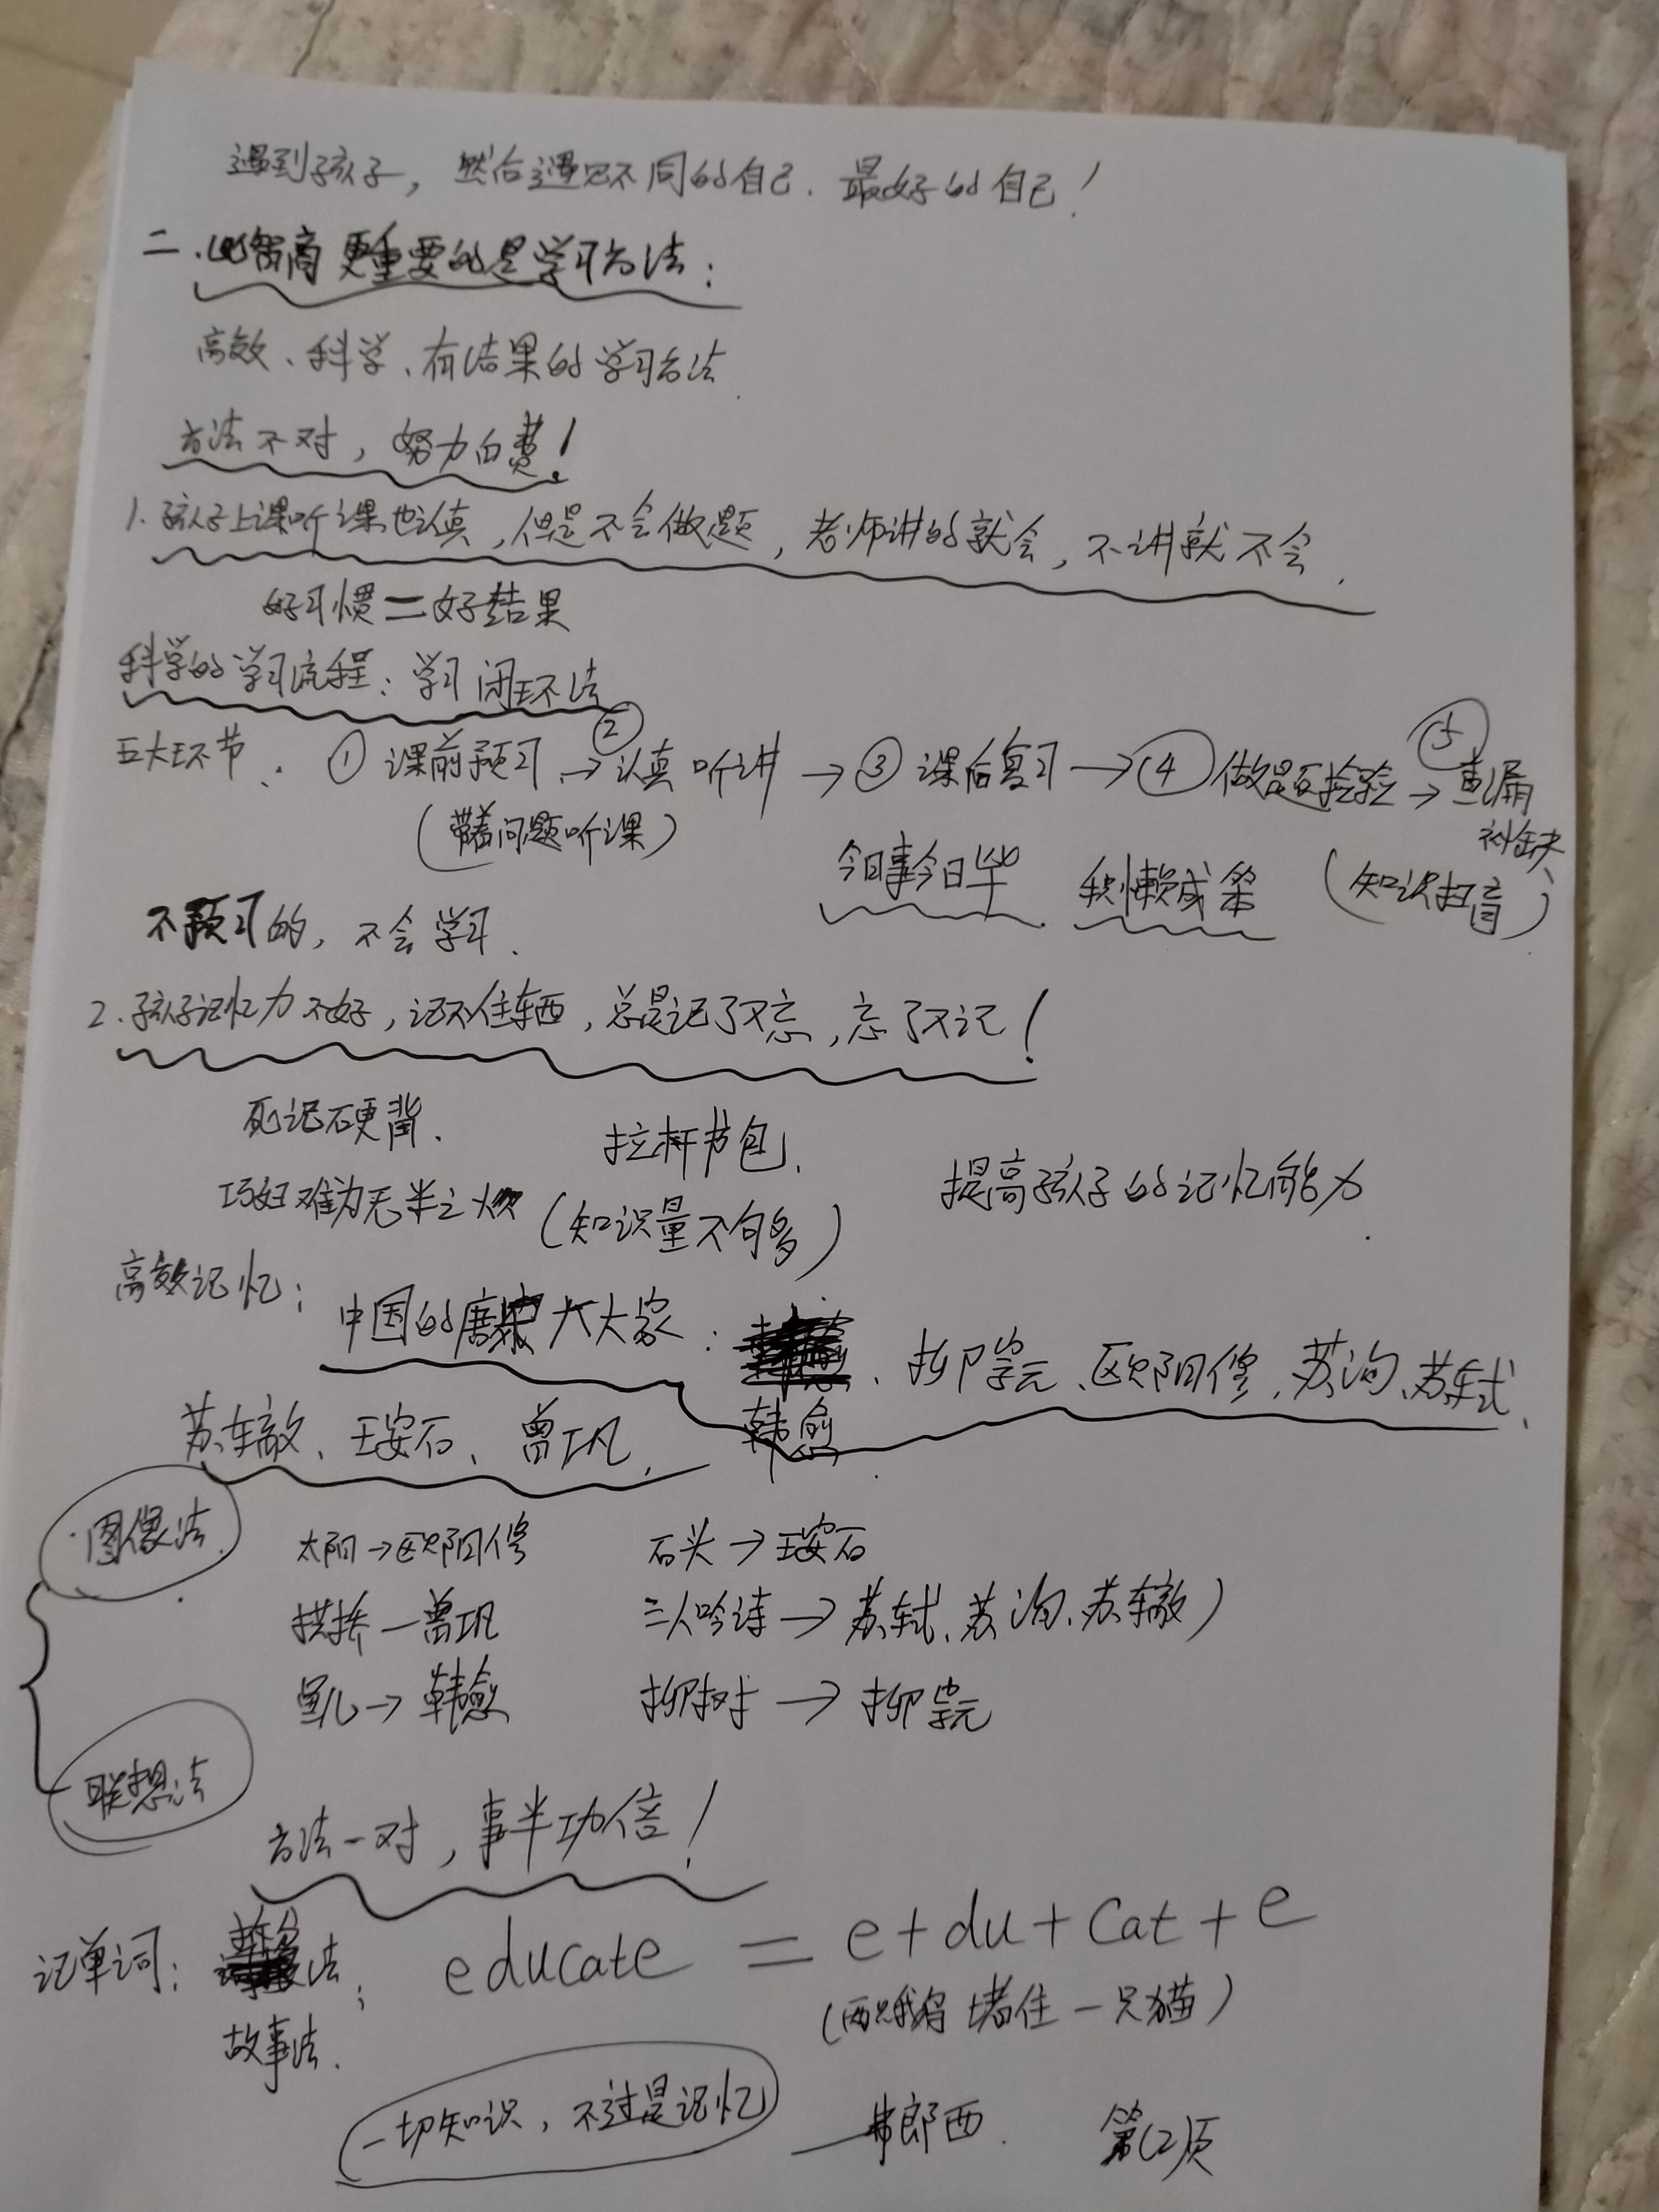 遇到孩子，然后遇见不同的自己．最好的自己！
二．比智商更重要的是学习方法：
高效、科学、有结果的学习方法
方法不对，努力白费！
1．孩子上课听课也认真，但是不会做题，老师讲的就会，不讲就不会．
好习惯＝好结果
科学的学习流程：学习闭环法
五大环节：①课前预习→②认真听讲→③课后复习→④做题检验→⑤查漏
补缺
（带着问题听课） 今日事今日毕． 积懒成笨 （知识扫盲）
不预习的，不会学习．
2．孩子记忆力不好，记不住东西，总是记了又忘，忘了又记！
死记硬背． 拉杆书包．
巧妇难为无米之炊（知识量不够多） 提高孩子的记忆能力．
高效记忆：中国的唐宋八大家：、柳宗元、欧阳修、苏洵、苏轼、
韩愈．
苏辙、王安石、曾巩．
图像法 太阳→欧阳修 石头→王安石
拱桥—曾巩 三人吟诗→苏轼、苏洵、苏辙）
鱼儿→韩愈 柳树→柳宗元
联想法
方法一对，事半功倍！
记单词：法； educate = e+du+cat+e
故事法． （两只鹅堵住一只猫）
一切知识，不过是记忆 —弗郎西． 第(2)页